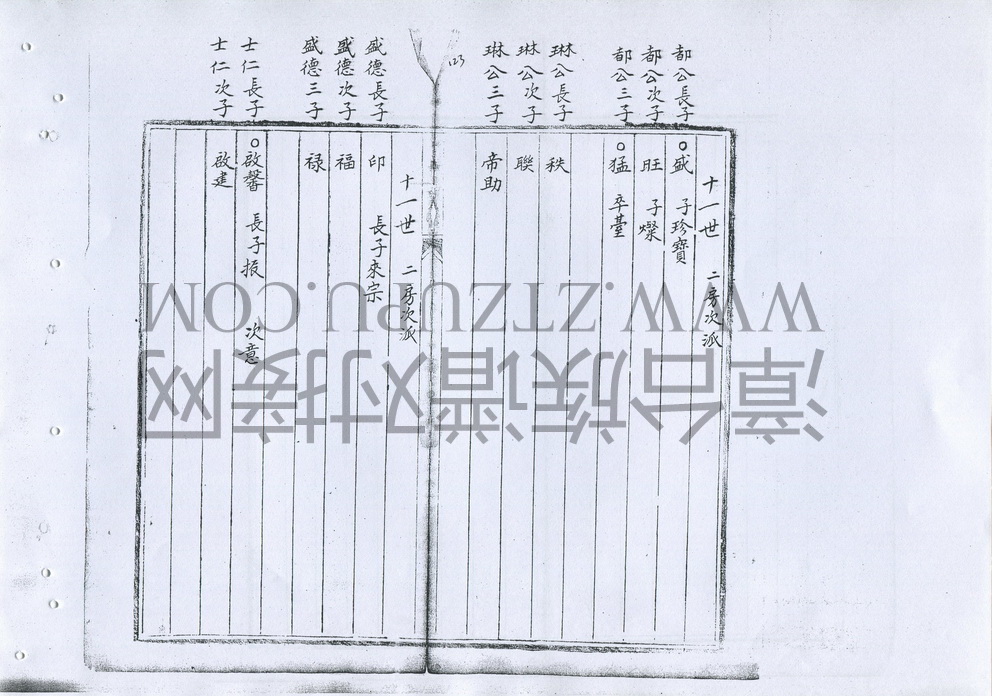 都公長子
都公次子
都公三子
琳公長子
琳公次子
琳公三子
123
盛德長子
盛德次子
盛德三子
士仁長子
士仁次子
十一世 二房次派
盛 子珍寶
旺 子燦
猛 卒臺
秩
聯
帝助
十一世 二房次派
印 長子來宗
福
禄
啟馨 長子振 次意
啟建
WWW.ZTZUPU.COM
漳台族谱对接网